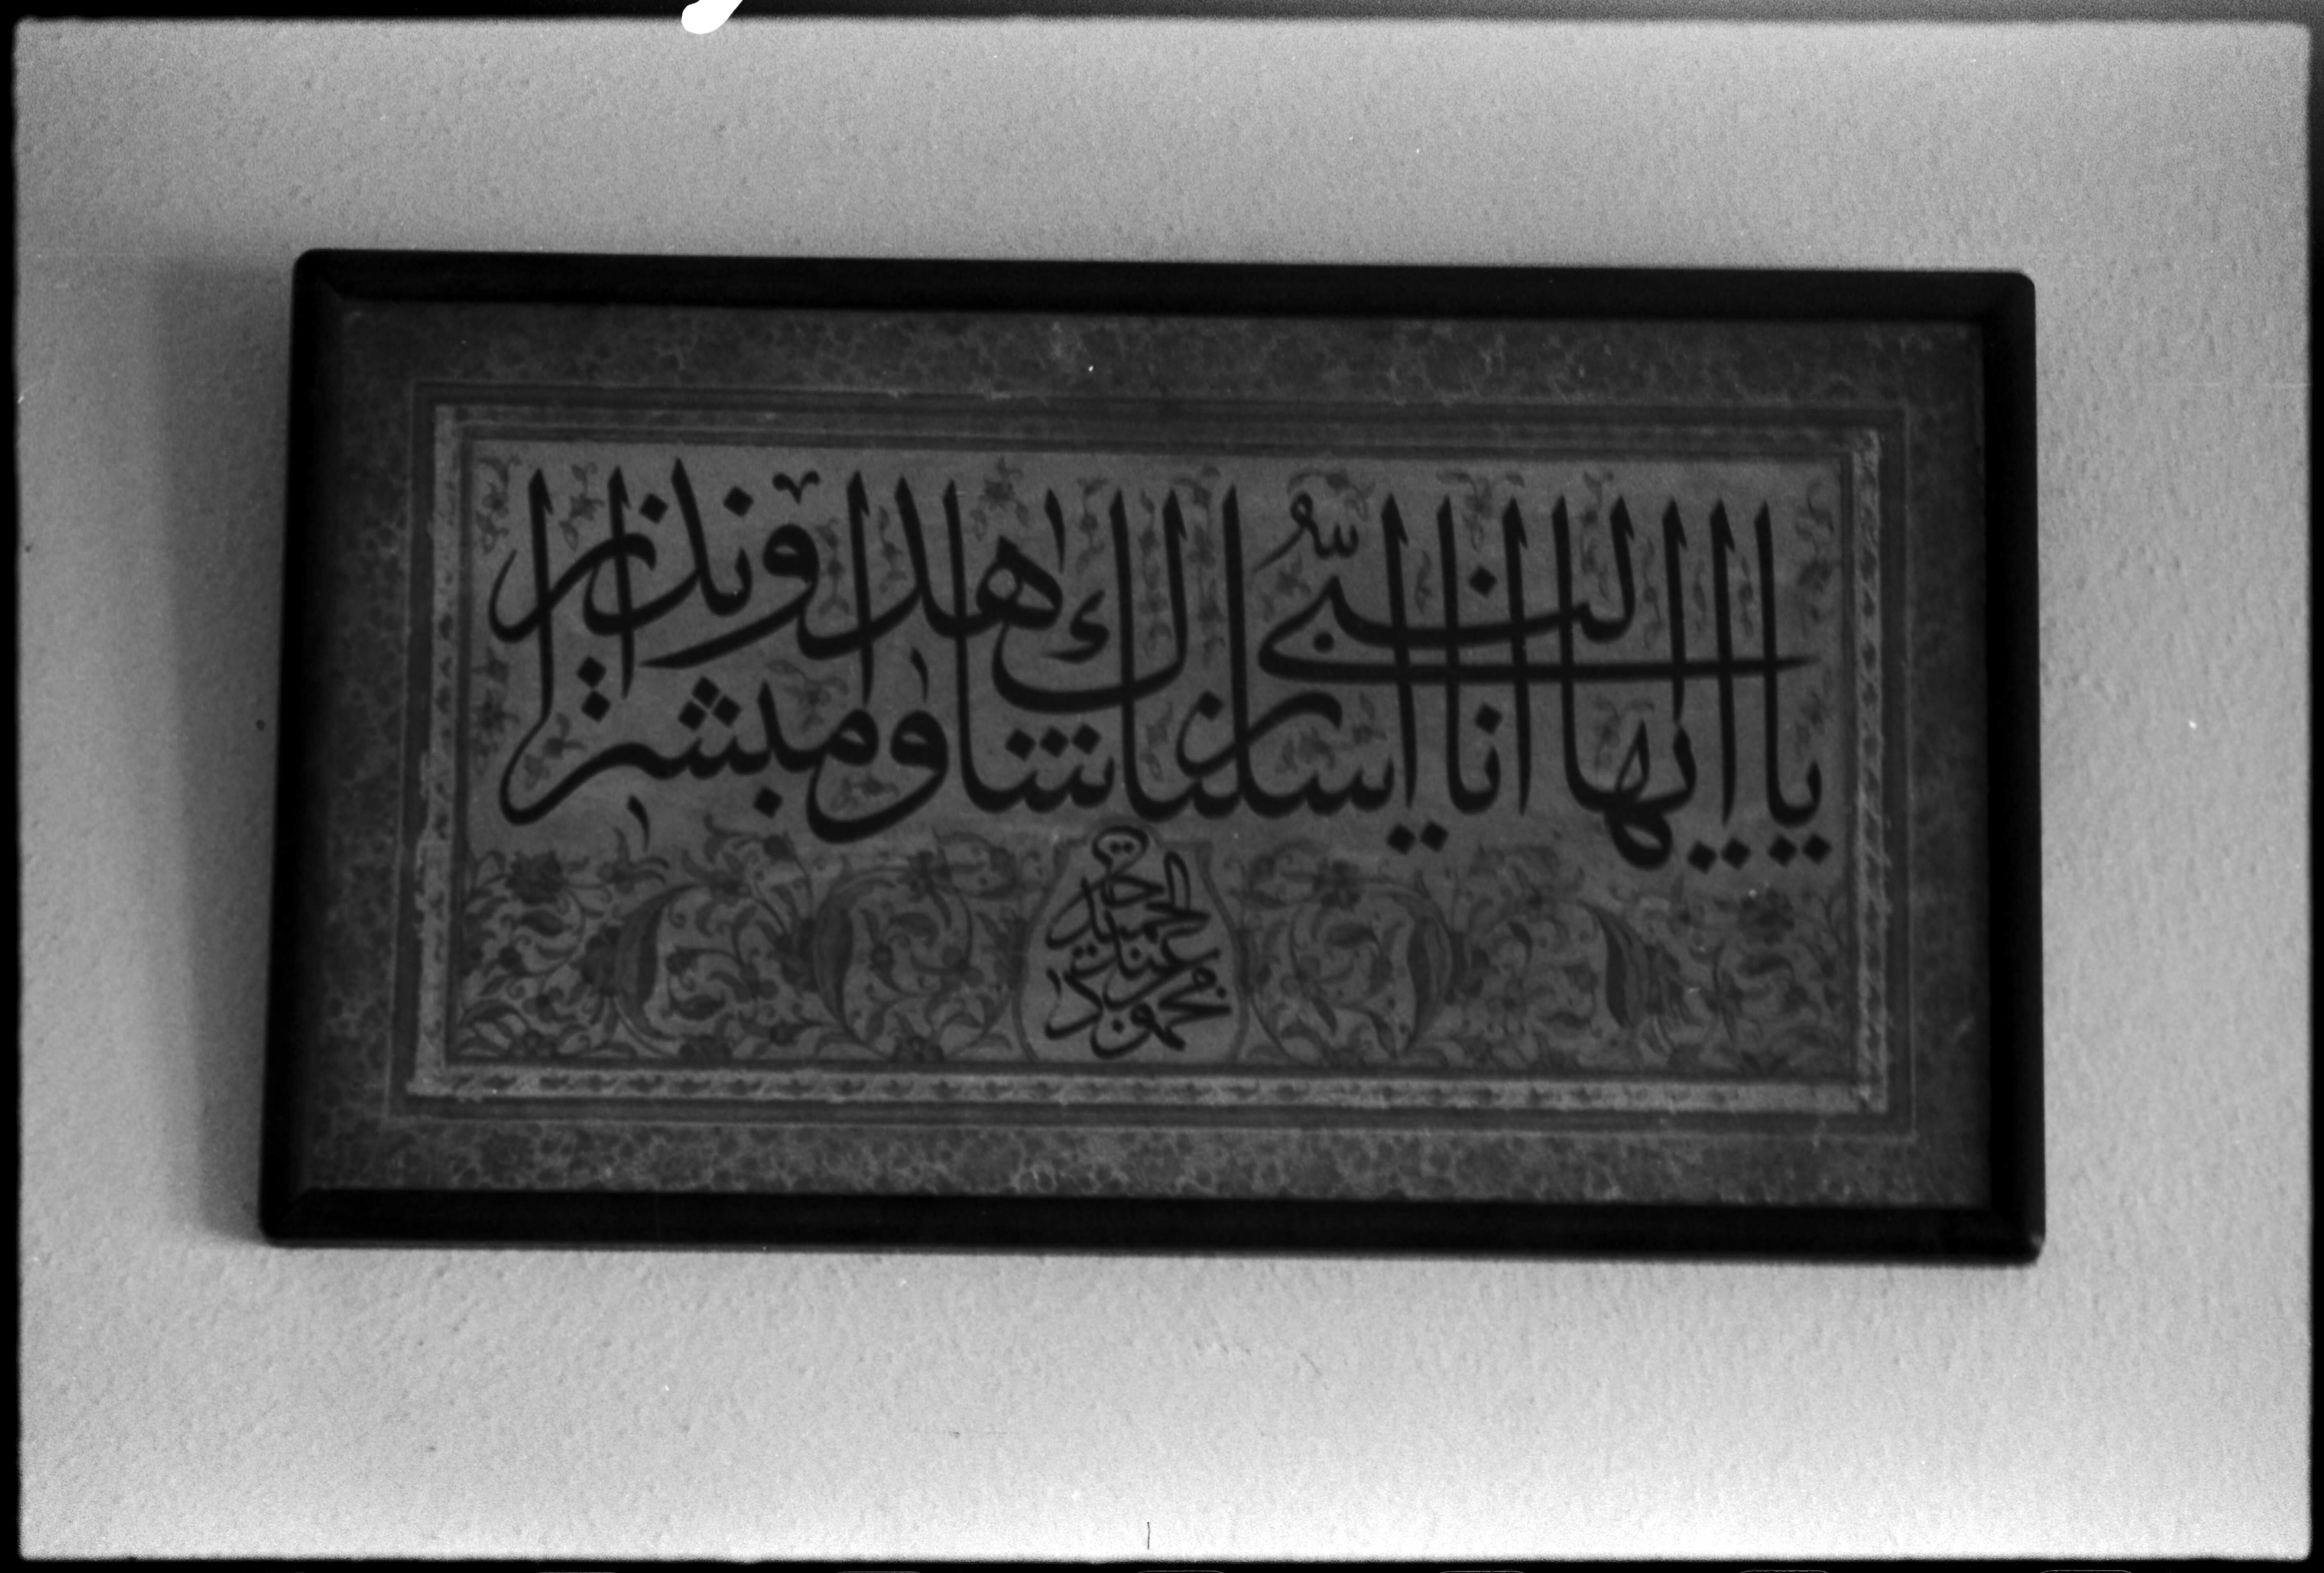 يا ايها النبي انا ارسلناك شاهدا ومبشرا ونذيرا
محمود عبد الحميد